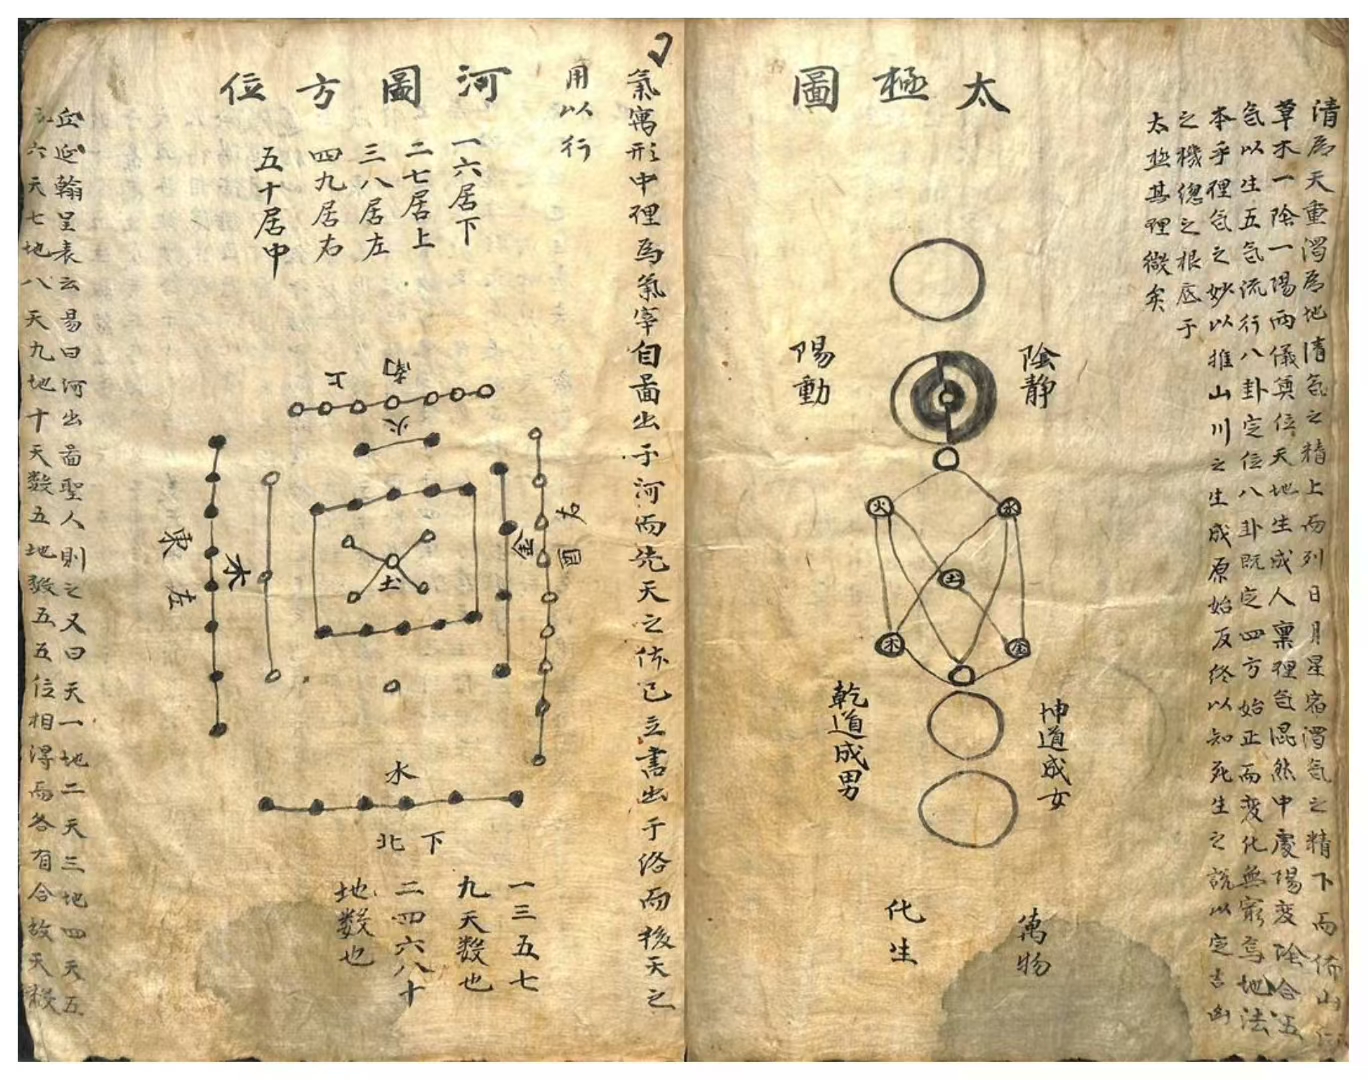 太極圖
清為天重濁為地清氣之精上而列日月星宿濁氣之精下而係山
草木一陰一陽両儀奠位天地生成人稟理氣混然中處陽変陰合五
氣以生五氣流行八卦定位八卦既定四方始正而変化無窮焉地法
本乎理氣之妙以推山川之生成原始反終以知死生之說以定吉凶
之機總之根底于
太極其理微矣
陰静
陽動
水
火
土
金
木
坤道成女
乾道成男
萬物
化生
氣寓形中理為氣宰自啚出于河而先天之体已立書出于洛而後天之
用以行
河圖方位
一六居下
二七居上
三八居左
四九居右
五十居中
南上
火
右西
金
土
木
東左
水
北下
一三五七
九天数也
二四六八十
地数也
丘延翰呈表云易曰河出啚聖人則之又曰天一地二天三地四天五
地六天七地八天九地十天数五地数五五位相得而各有合故天数